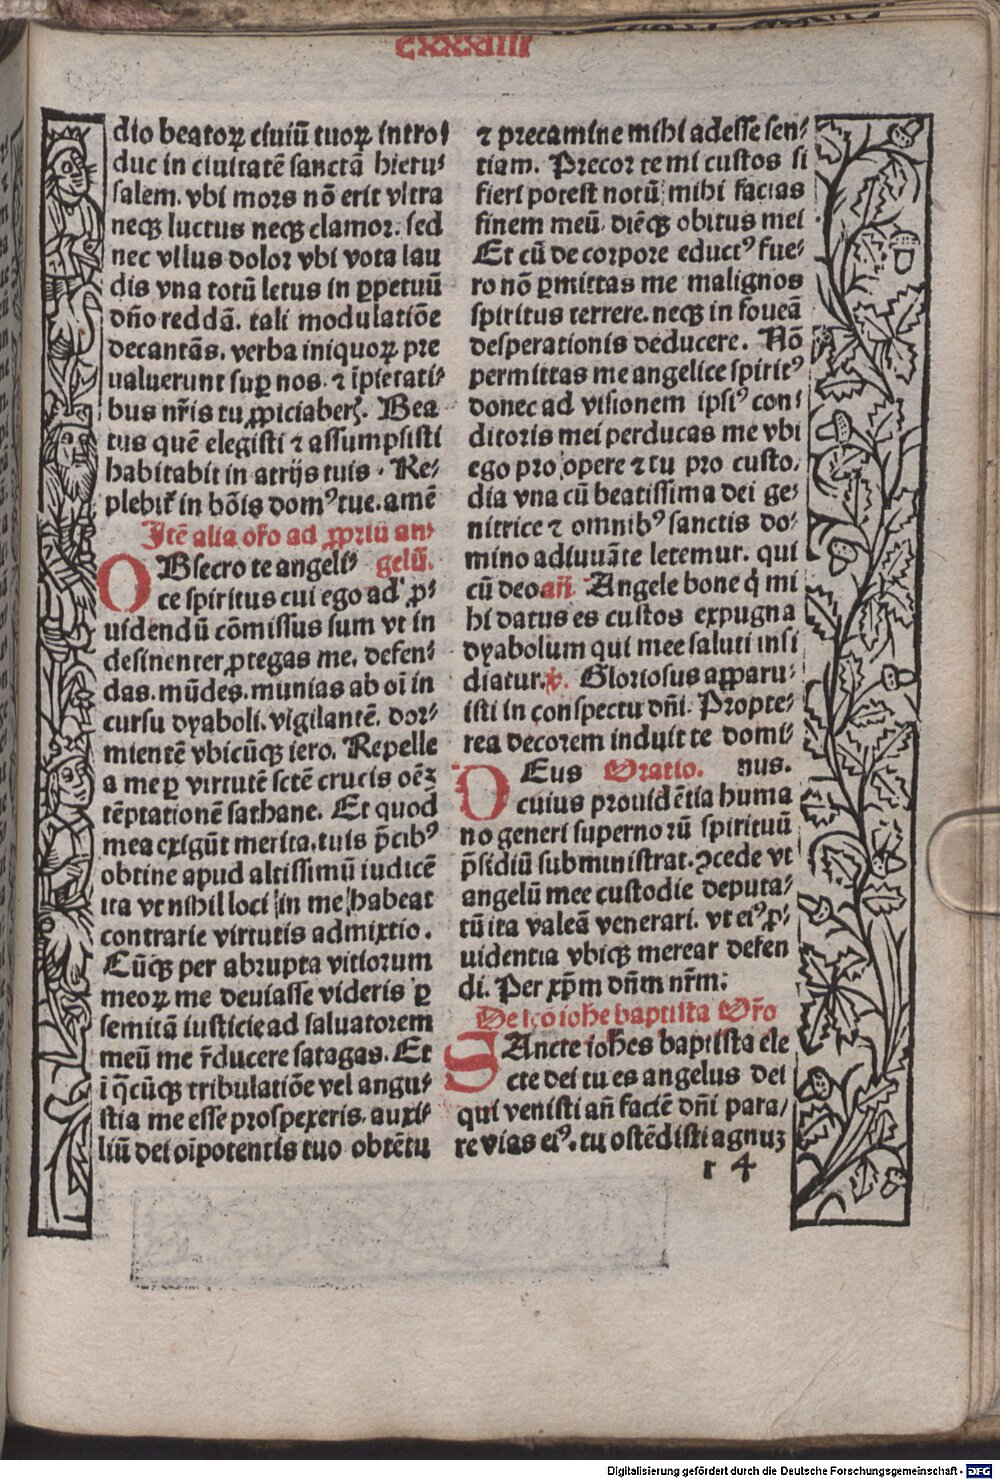 cxxxiiii
dio beatoꝝ ciuiū tuoꝝ intro/
duc in ciuitatē sanctā hieru⸗
salem. vbi mors nō erit vltra
neqꝫ luctus neqꝫ clamor. sed
nec vllus dolor vbi vota lau
dis vna totū letus in ꝑpetuū
dño reddā. tali modulatiōe
decantās. verba iniquoꝝ pre
ualuerunt suꝑ nos. ⁊ īpietati⸗
bus nr̄is tu ꝓpiciaberꝭ. Bea
tus quē elegisti ⁊ assumpsisti
habitabit in atrijs tuis. Re⸗
plebit᷑ in bōis domꝰ tue. amē
Itē alia or̄o ad ꝓpriū an⸗
gelū.
OBsecro te angeli⸗
ce spiritus cui ego ad ꝓ⸗
uidendū cōmissus sum vt in
desinenter ꝓtegas me. defen⸗
das. mūdes. munias ab oī in
cursu dyaboli. vigilantē. dor⸗
mientē vbicūqꝫ iero. Repelle
a me ꝑ virtutē sctē crucis oēꝫ
tēptationē sathane. Et quod
mea exigūt merita. tuis p̄cibꝰ
obtine apud altissimū iudicē
ita vt nihil loci in me habeat
contrarie virtutis admixtio.
Cūqꝫ per abrupta vitiorum
meoꝝ me deuiasse videris ꝑ
semitā iusticie ad saluatorem
meū me r̄ducere satagas. Et
ī q̄cūqꝫ tribulatiōe vel angu⸗
stia me esse prospexeris. auxi⸗
liū dei oīpotentis tuo obtētu
⁊ precamine mihi adesse sen⸗
tiam. Precor te mi custos si
fieri potest notū mihi facias
finem meū. diēqꝫ obitus mei
Et cū de corpore eductꝰ fue⸗
ro nō ꝑmittas me malignos
spiritus terrere. neqꝫ in foueā
desperationis deducere. Nō
permittas me angelice spiritꝰ
donec ad visionem ipsiꝰ con⸗
ditoris mei perducas me vbi
ego pro opere ⁊ tu pro custo⸗
dia vna cū beatissima dei ge⸗
nitrice ⁊ omnibꝰ sanctis do⸗
mino adiuuāte letemur. qui
cū deo añ. Angele bone q̇ mi
hi datus es custos expugna
dyabolum qui mee saluti insi
diatur. ℣. Gloriosus apparu⸗
isti in conspectu dñi. Propte⸗
rea decorem induit te domi⸗
nus.
DEus Oratio.
cuius prouidētia huma
no generi supernorū spirituū
p̄sidiū subministrat. ↄcede vt
angelū mee custodie deputa⸗
tū ita valeā venerari. vt eiꝰ ꝓ⸗
uidentia vbiqꝫ merear defen
di. Per xp̄m dñm nr̄m:
De sco iohe baptista Or̄o
SAncte ioh̄es baptista ele
cte dei tu es angelus dei
qui venisti añ faciē dñi para/
re vias eiꝰ. tu ostēdisti agnuꝫ
r 4
Digitalisierung gefördert durch die Deutsche Forschungsgemeinschaft - DFG